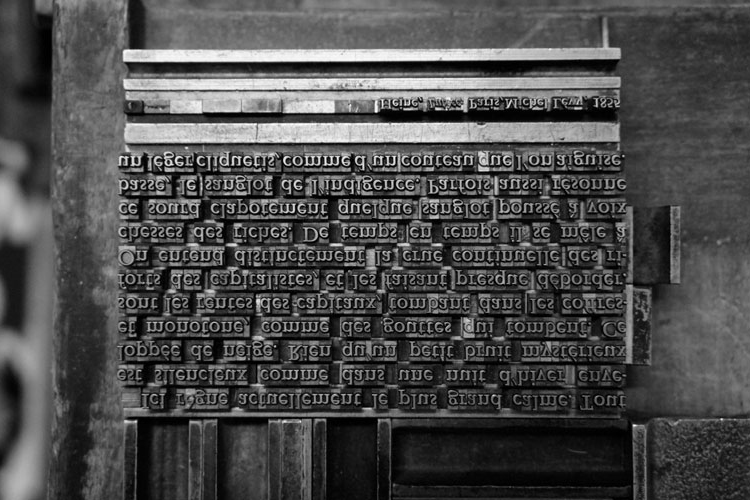 Ici règne actuellement le plus grand calme. Tout
est silencieux comme dans une nuit d'hiver enve-
loppée de neige. Rien qu'un petit bruit mystérieux
et monotone, comme des gouttes qui tombent. Ce
sont les rentes des capitaux, tombant dans les coffres-
forts des capitalistes, et les faisant presque déborder.
On entend distinctement la crue continuelle des ri-
chesses des riches. De temps en temps il se mêle à
ce sourd clapotement quelque sanglot poussé à voix
basse, le sanglot de l'indigence. Parfois aussi résonne
un léger cliquetis, comme d'un couteau que l'on aiguise.
Heine, Lutèce, Paris, Michel Lévy, 1855